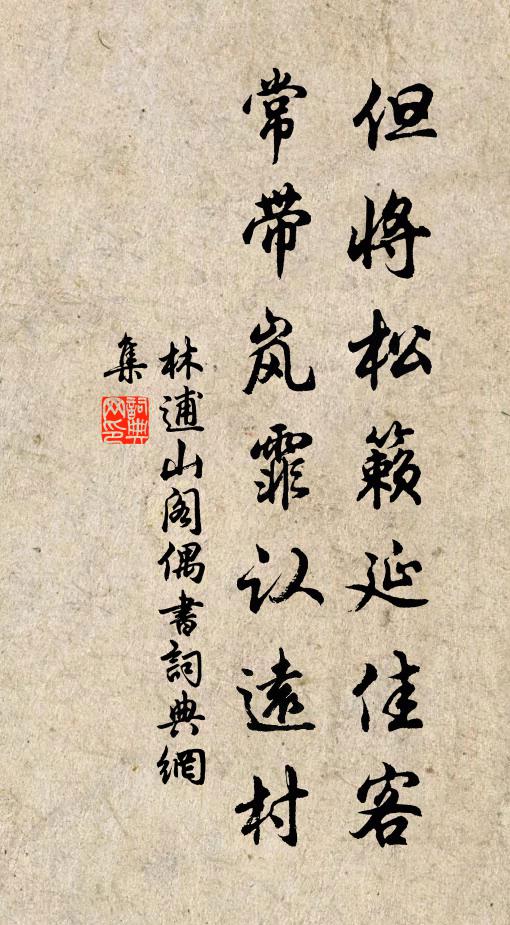 但将松籁延佳客
常带岚霏认远村
林逋山阁偶书词典網
集
詞典
网印